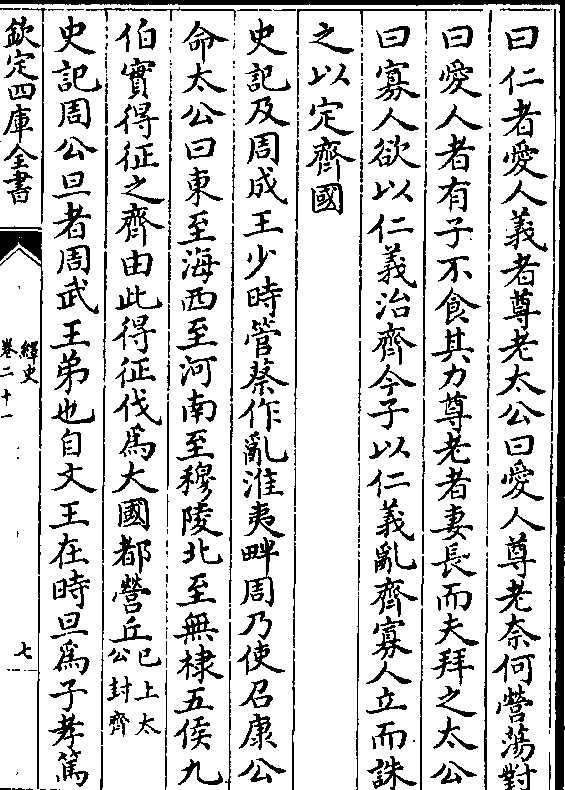 曰仁者愛人義者尊老太公曰愛人尊老奈何營蕩對
曰愛人者有子不食其力尊老者妻長而夫拜之太公
曰寡人欲以仁義治齊今子以仁義亂齊寡人立而誅
之以定齊國
史記及周成王少時管蔡作亂淮夷畔周乃使召康公
命太公曰東至海西至河南至穆陵北至無棣五侯九
伯實得征之齊由此得征伐爲大國都營丘已上太公封齊
史記周公旦者周武王弟也自文王在時旦爲子孝篤
欽定四庫全書
繹史
卷二十一
七